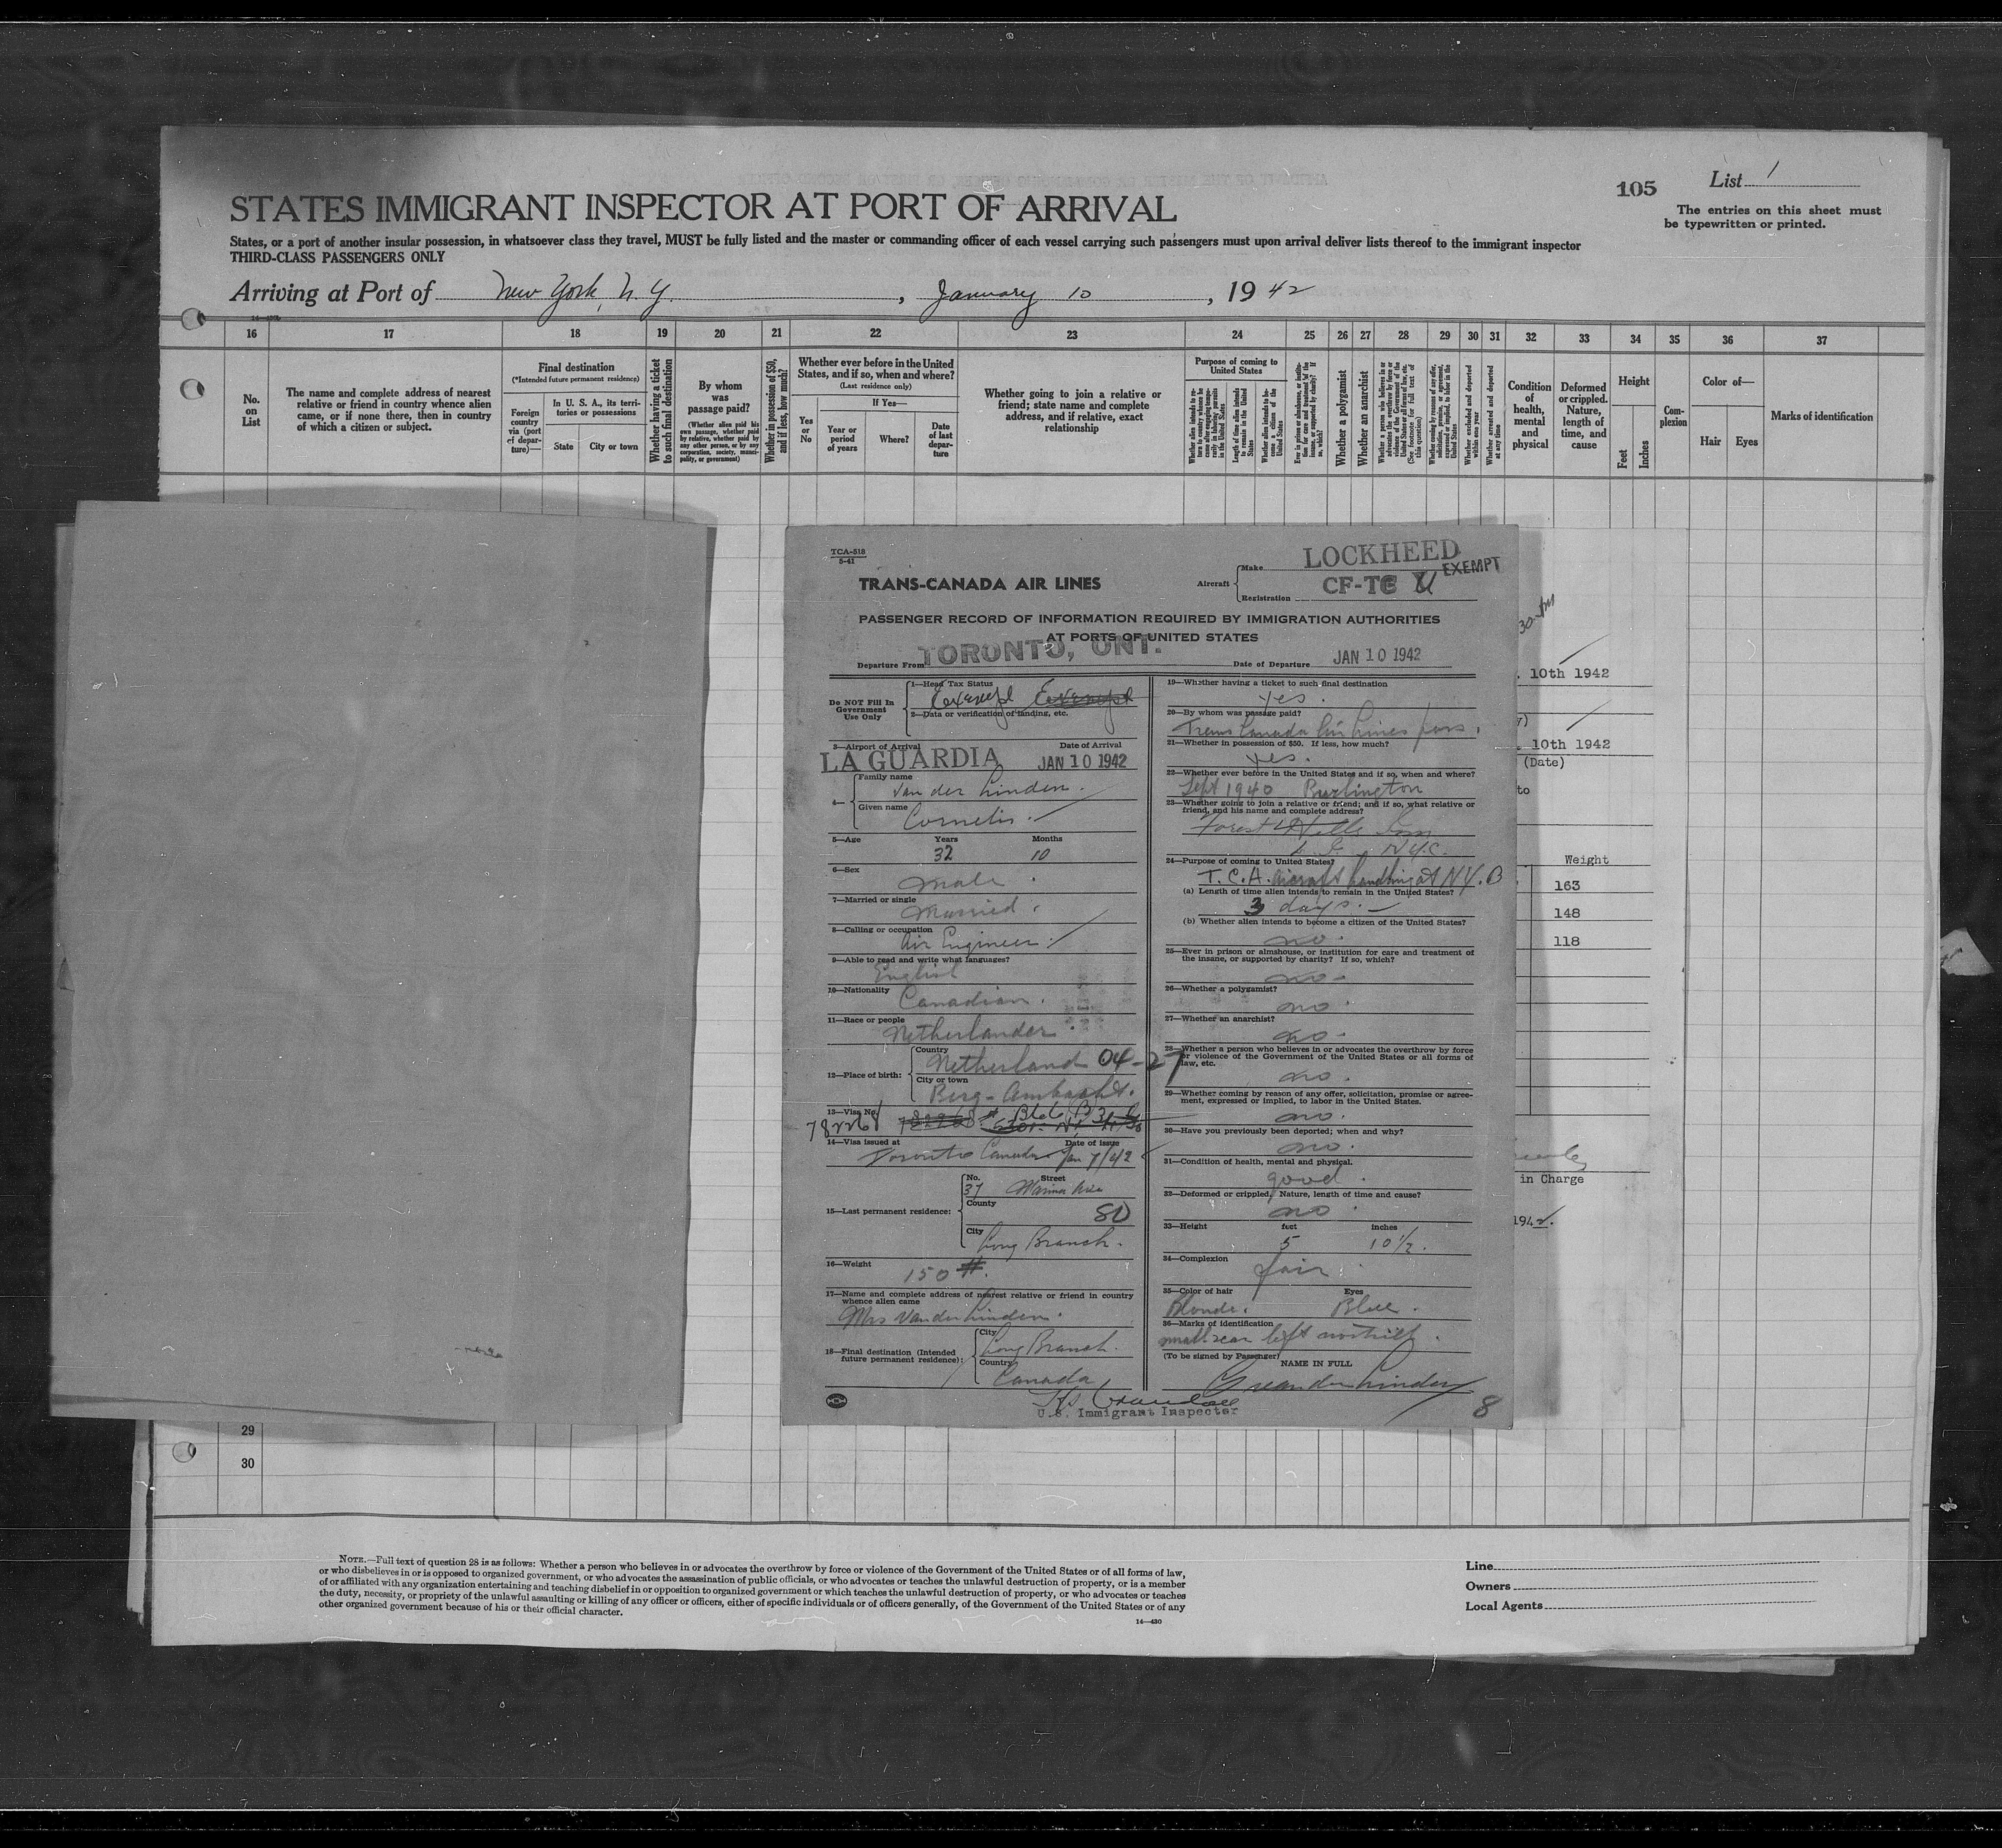 105
List 1
The entries on this sheet must
be typewritten or printed.
STATES IMMIGRANT INSPECTOR AT PORT OF ARRIVAL
States, or a port of another insular possession, in whatsoever class they travel, MUST be fully listed and the master or commanding officer of each vessel carrying such passengers must upon arrival deliver lists thereof to the immigrant inspector
THIRD-CLASS PASSENGERS ONLY
Arriving at Port of New York, N.Y., January 10, 1942
16 17 18 19 20 21 22 23 24 25 26 27 28 29 30 31 32 33 34 35 36 37
No.
on
List
The name and complete address of nearest
relative or friend in country whence alien
came, or if none there, then in country
of which a citizen or subject.
Final destination
(*Intended future permanent residence)
Foreign
country
via (port
of depar-
ture)—
In U. S. A., its terri-
tories or possessions
State
City or town
Whether having a ticket
to such final destination
By whom
was
passage paid?
(Whether alien paid his
own passage, whether paid
by relative, whether paid by
any other person, or by any
corporation, society, munici-
pality, or government)
Whether in possession of $50,
and if less, how much?
Whether ever before in the United
States, and if so, when and where?
(Last residence only)
Yes
or
No
If Yes—
Year or
period
of years
Where?
Date
of last
depar-
ture
Whether going to join a relative or
friend; state name and complete
address, and if relative, exact
relationship
Purpose of coming to
United States
Whether a polygamist
Whether an anarchist
Condition
of
health,
mental
and
physical
Deformed
or crippled.
Nature,
length of
time, and
cause
Height
Feet
Inches
Com-
plexion
Color of—
Hair
Eyes
Marks of identification
TCA-518
5-41
TRANS-CANADA AIR LINES
Aircraft
Make LOCKHEED
EXEMPT
Registration CF-TC
PASSENGER RECORD OF INFORMATION REQUIRED BY IMMIGRATION AUTHORITIES
AT PORTS OF UNITED STATES
Departure From TORONTO, ONT.
Date of Departure JAN 10 1942
Do NOT Fill In
Government
Use Only
1—Head Tax Status
Exempt Exempt
2—Data or verification of landing, etc.
3—Airport of Arrival Date of Arrival
LA GUARDIA JAN 10 1942
4—
Family name
Van der Linden.
Given name
Cornelis.
5—Age Years Months
32 10
6—Sex
Male.
7—Married or single
Married.
8—Calling or occupation
Air Engineer.
9—Able to read and write what languages?
English
10—Nationality
Canadian.
11—Race or people
Netherlander.
12—Place of birth:
Country
Netherland 04-27
City or town
Berg-Ambacht.
13—Visa No.
14—Visa issued at Date of issue
Toronto Canada Jan 7/42
15—Last permanent residence:
No. Street
37
County
City
Long Branch.
80
16—Weight
150 #.
17—Name and complete address of nearest relative or friend in country
whence alien came
Mrs Van der Linden.
18—Final destination (Intended
future permanent residence):
City
Long Branch.
Country
Canada
19—Whether having a ticket to such final destination
Yes.
20—By whom was passage paid?
Trans Canada Air Lines pass.
21—Whether in possession of $50. If less, how much?
Yes.
22—Whether ever before in the United States and if so, when and where?
Sept 1940 Burlington
23—Whether going to join a relative or friend; and if so, what relative or
friend, and his name and complete address?
Forest Hills Inn
L. I. N.Y.C.
24—Purpose of coming to United States?
T.C.A. Aircraft handling at N.Y.
(a) Length of time alien intends to remain in the United States?
3 days.
(b) Whether alien intends to become a citizen of the United States?
no.
25—Ever in prison or almshouse, or institution for care and treatment of
the insane, or supported by charity? If so, which?
no
26—Whether a polygamist?
no.
27—Whether an anarchist?
no
28—Whether a person who believes in or advocates the overthrow by force
or violence of the Government of the United States or all forms of
law, etc.
no.
29—Whether coming by reason of any offer, solicitation, promise or agree-
ment, expressed or implied, to labor in the United States.
no.
30—Have you previously been deported; when and why?
no.
31—Condition of health, mental and physical.
good.
32—Deformed or crippled, Nature, length of time and cause?
no.
33—Height feet inches
5 10 1/2.
34—Complexion
fair.
35—Color of hair Eyes
Blonde. Blue.
36—Marks of identification
small scar left nostril.
(To be signed by Passenger)
NAME IN FULL
C van der Linden
U.S. Immigrant Inspector
8
10th 1942
10th 1942
(Date)
to
Weight
163
148
118
in Charge
1942.
29
30
NOTE.—Full text of question 28 is as follows: Whether a person who believes in or advocates the overthrow by force or violence of the Government of the United States or of all forms of law,
or who disbelieves in or is opposed to organized government, or who advocates the assassination of public officials, or who advocates or teaches the unlawful destruction of property, or is a member
of or affiliated with any organization entertaining and teaching disbelief in or opposition to organized government or which teaches the unlawful destruction of property, or who advocates or teaches
the duty, necessity, or propriety of the unlawful assaulting or killing of any officer or officers, either of specific individuals or of officers generally, of the Government of the United States or of any
other organized government because of his or their official character.
14—430
Line
Owners
Local Agents